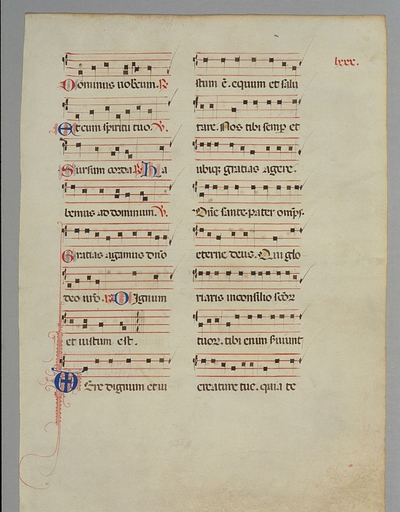 lxxx.
Dominus vobiscum. R
Et cum spiritu tuo. V.
Sursum corda. R Ha
bemus ad dominum. V.
Gratias agamus dño
deo nr̃o. R Dignum
et iustum est.
Vere dignum et iu
stum ẽ. equum et salu
tare. Nos tibi semp̃ et
ubiq; gratias agere.
Dñe sancte pater omps̃
eterne deus. Qui glo
riaris in consilio scõꝝ
tuoꝝ. tibi enim serviunt
creature tue. quia te